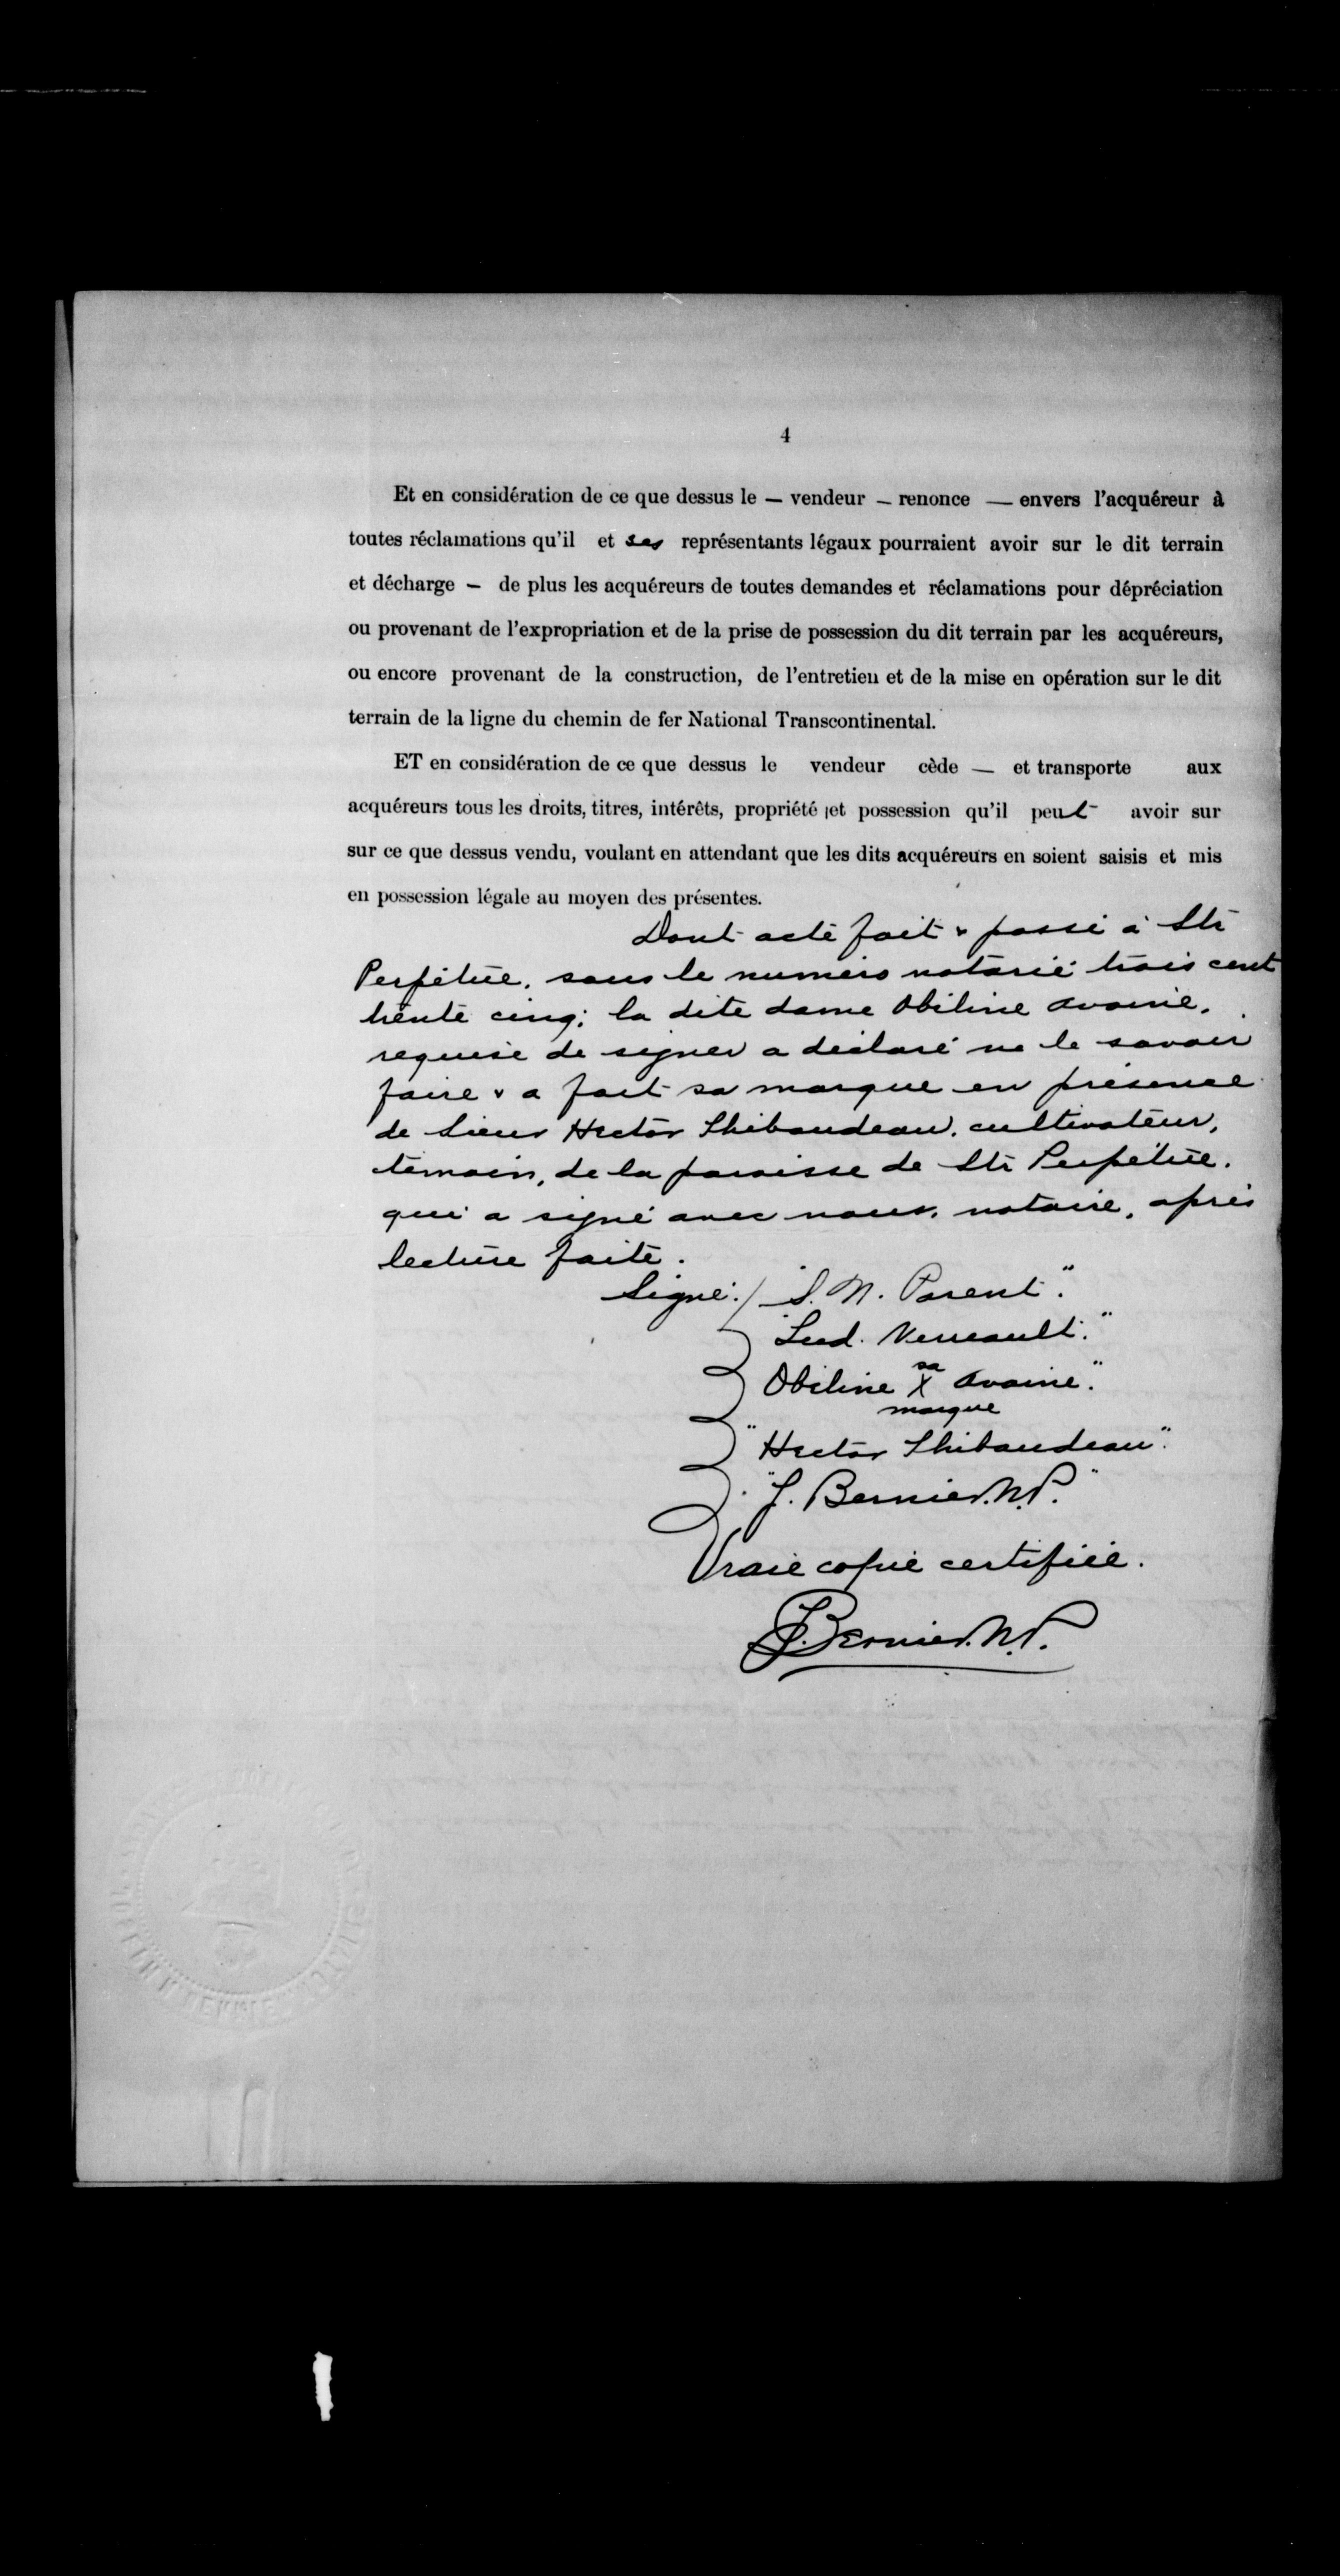 4
Et en considération de ce que dessus le — vendeur — renonce — envers l'acquéreur à
toutes réclamations qu'il et ses représentants légaux pourraient avoir sur le dit terrain
et décharge — de plus les acquéreurs de toutes demandes et réclamations pour dépréciation
ou provenant de l'expropriation et de la prise de possession du dit terrain par les acquéreurs,
ou encore provenant de la construction, de l'entretien et de la mise en opération sur le dit
terrain de la ligne du chemin de fer National Transcontinental.
ET en considération de ce que dessus le vendeur cède — et transporte aux
acquéreurs tous les droits, titres, intérêts, propriété et possession qu'il peut avoir sur
sur ce que dessus vendu, voulant en attendant que les dits acquéreurs en soient saisis et mis
en possession légale au moyen des présentes.
Dont acte fait & passé à Ste
Perpétue, sous le numéro notarié trois cent
trente cinq; la dite dame Obiline Avoine,
requise de signer a déclaré ne le savoir
faire & a fait sa marque en présence
de Sieur Hector Thibaudeau, cultivateur,
témoin, de la paroisse de Ste Perpétue,
qui a signé avec nous, notaire, après
lecture faite.
Signé: / "S. N. Parent".
"Lud. Verreault."
Obiline sa X Avoine."
marque
"Hector Thibaudeau".
"J. Bernier. N.P."
Vraie copie certifiée.
J. Bernier. N.P.